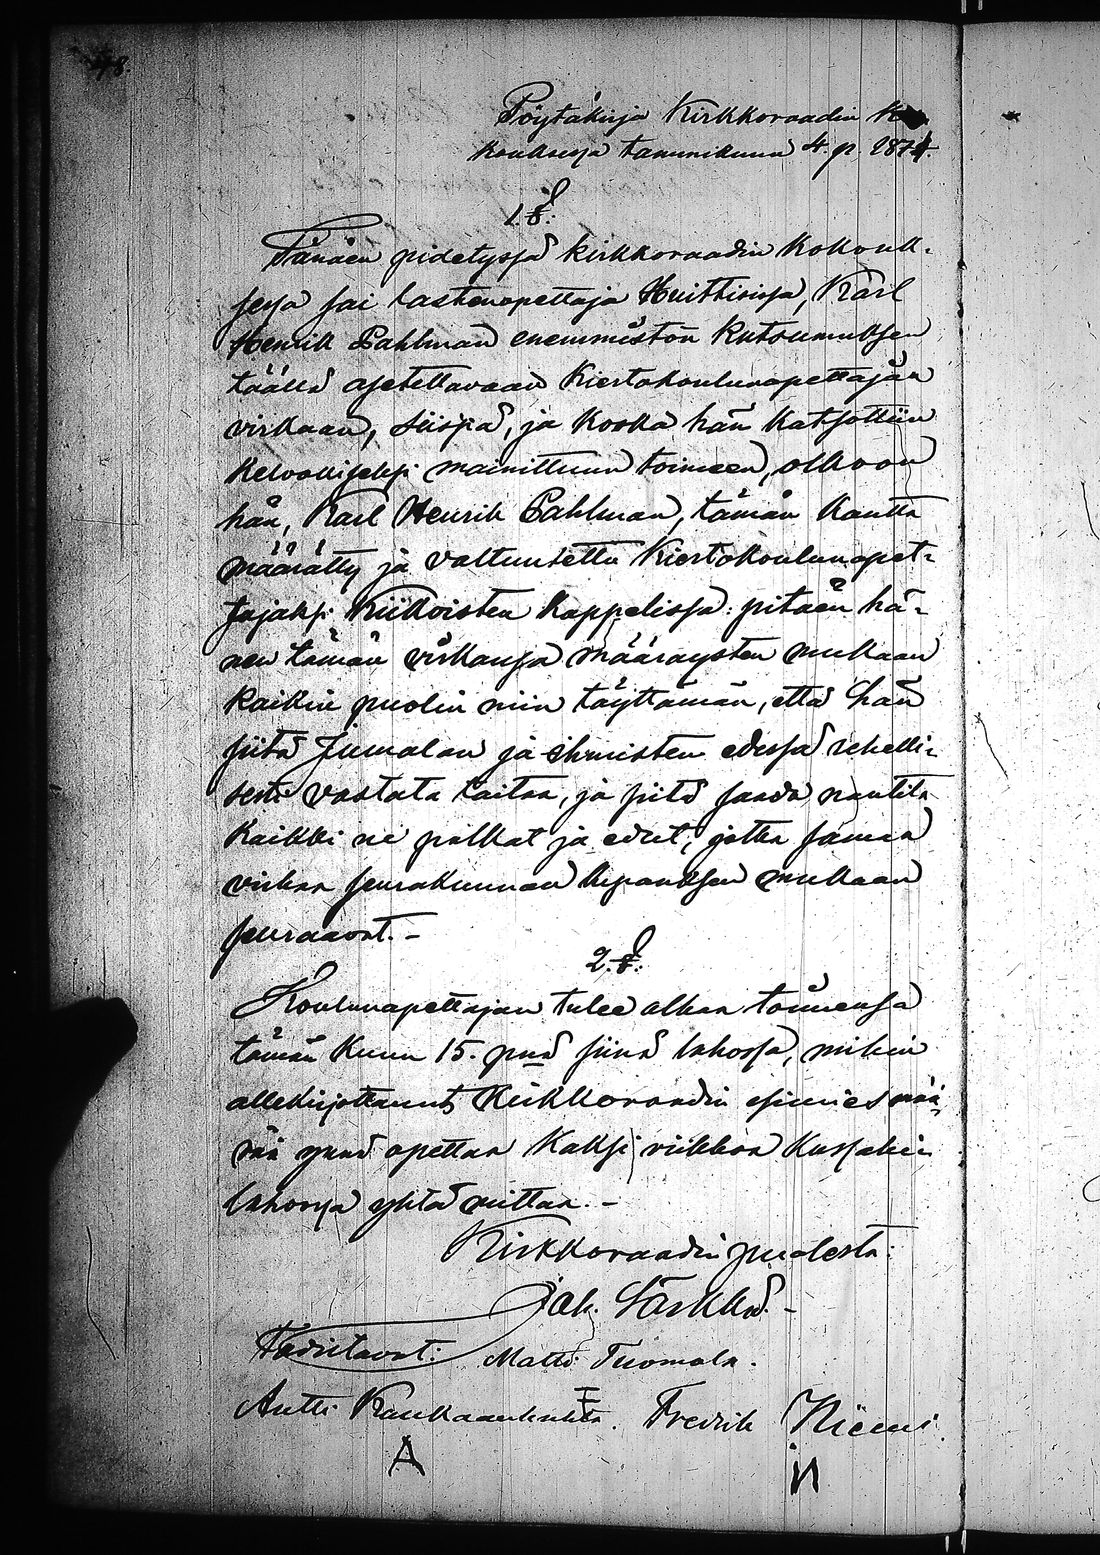 48.
Pöytäkirja Kirkkoraadin Ko-
kouksessa tammikuun 4. p. 1874.
1 §:
Tänäen pidetyssä kirkkoraadin kokouk-
sessa sai lastenopettaja Huittisissa, Karl
Henrik Pahlman enemmistön kutsumuksen
täällä asetettavaan Kiertokoulunopettajan
virkaan, siispä, ja koska hän katsottiin
kelvolliseksi mainittuun toimeen, olkoon
hän, Karl Henrik Pahlman, tämän kautta
määrätty ja valtuutettu Kiertokoulunopet-
tajaksi Kiikoisten Kappelissa: pitäen hä-
nen tämän virkansa määräysten mukaan
kaikin puolin niin täyttämän, että hän
siitä Jumalan ja ihmisten edessä rehelli-
sesti vastata taitaa, ja siitä saada nautita
kaikki ne palkat ja edut, jotka samaa
virkaa seurakunnan lupauksen mukaan
seuraavat. -
2. §:
Koulunopettajan tulee alkaa toimensa
tämän kuun 15. pnä siinä lahossa, mihin
allekirjottanut Kirkkoraadin esimies mää-
rää ynnä opettaa kaksi viikkoa kussakin
lahossa yhtä mittaa. -
Kirkkoraadin puolesta:
Jak. Särkkä. -
Todistavat: Matti Tuomola.
Antti Kaukaanhuhta. Fredrik Niemi.
A N